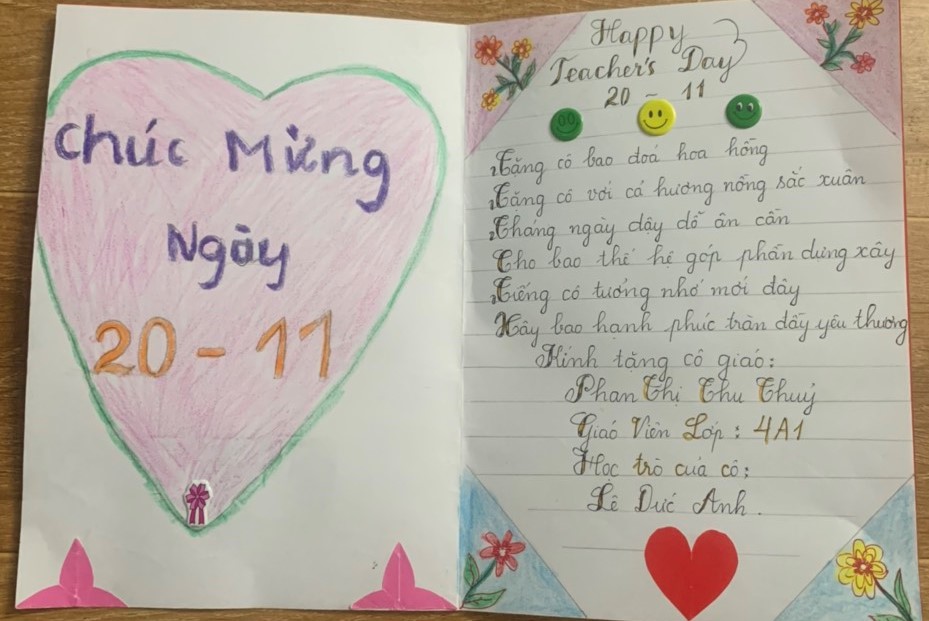 Chúc Mừng
Ngày
20 - 11
Happy
Teacher's Day
20 - 11
Tặng cô bao đoá hoa hồng
Tặng cô với cả hương nồng sắc xuân
Tháng ngày dậy dỗ ân cần
Cho bao thế hệ góp phần dựng xây
Tiếng cô tưởng nhớ mới đây
Xây bao hạnh phúc tràn đầy yêu thương
Kính tặng cô giáo:
Phan Thị Thu Thuỷ
Giáo Viên Lớp: 4A1
Học trò của cô:
Lê Đức Anh.